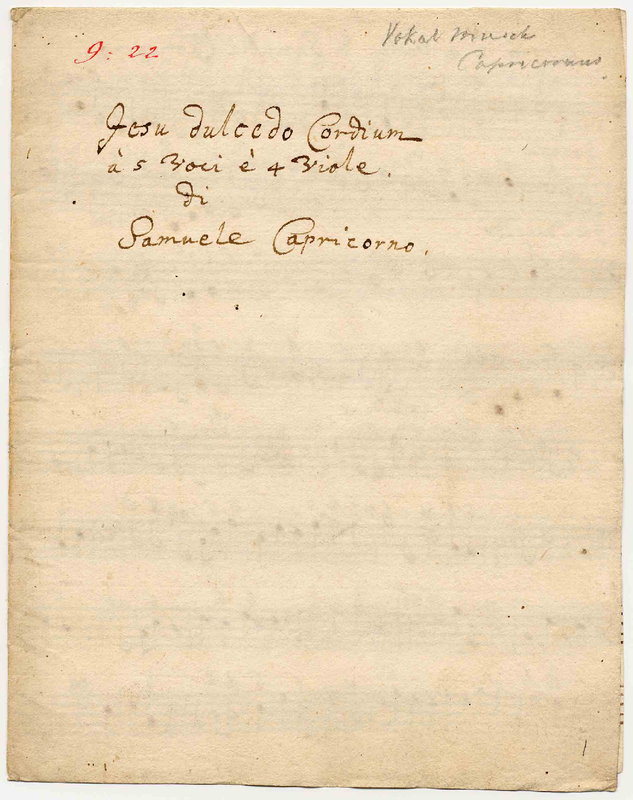 9: 22
Vokal
Capricornus.
Jesu dulcedo Cordium
à 5 Voci è 4 Viole.
di
Samuele Capricorno.
1